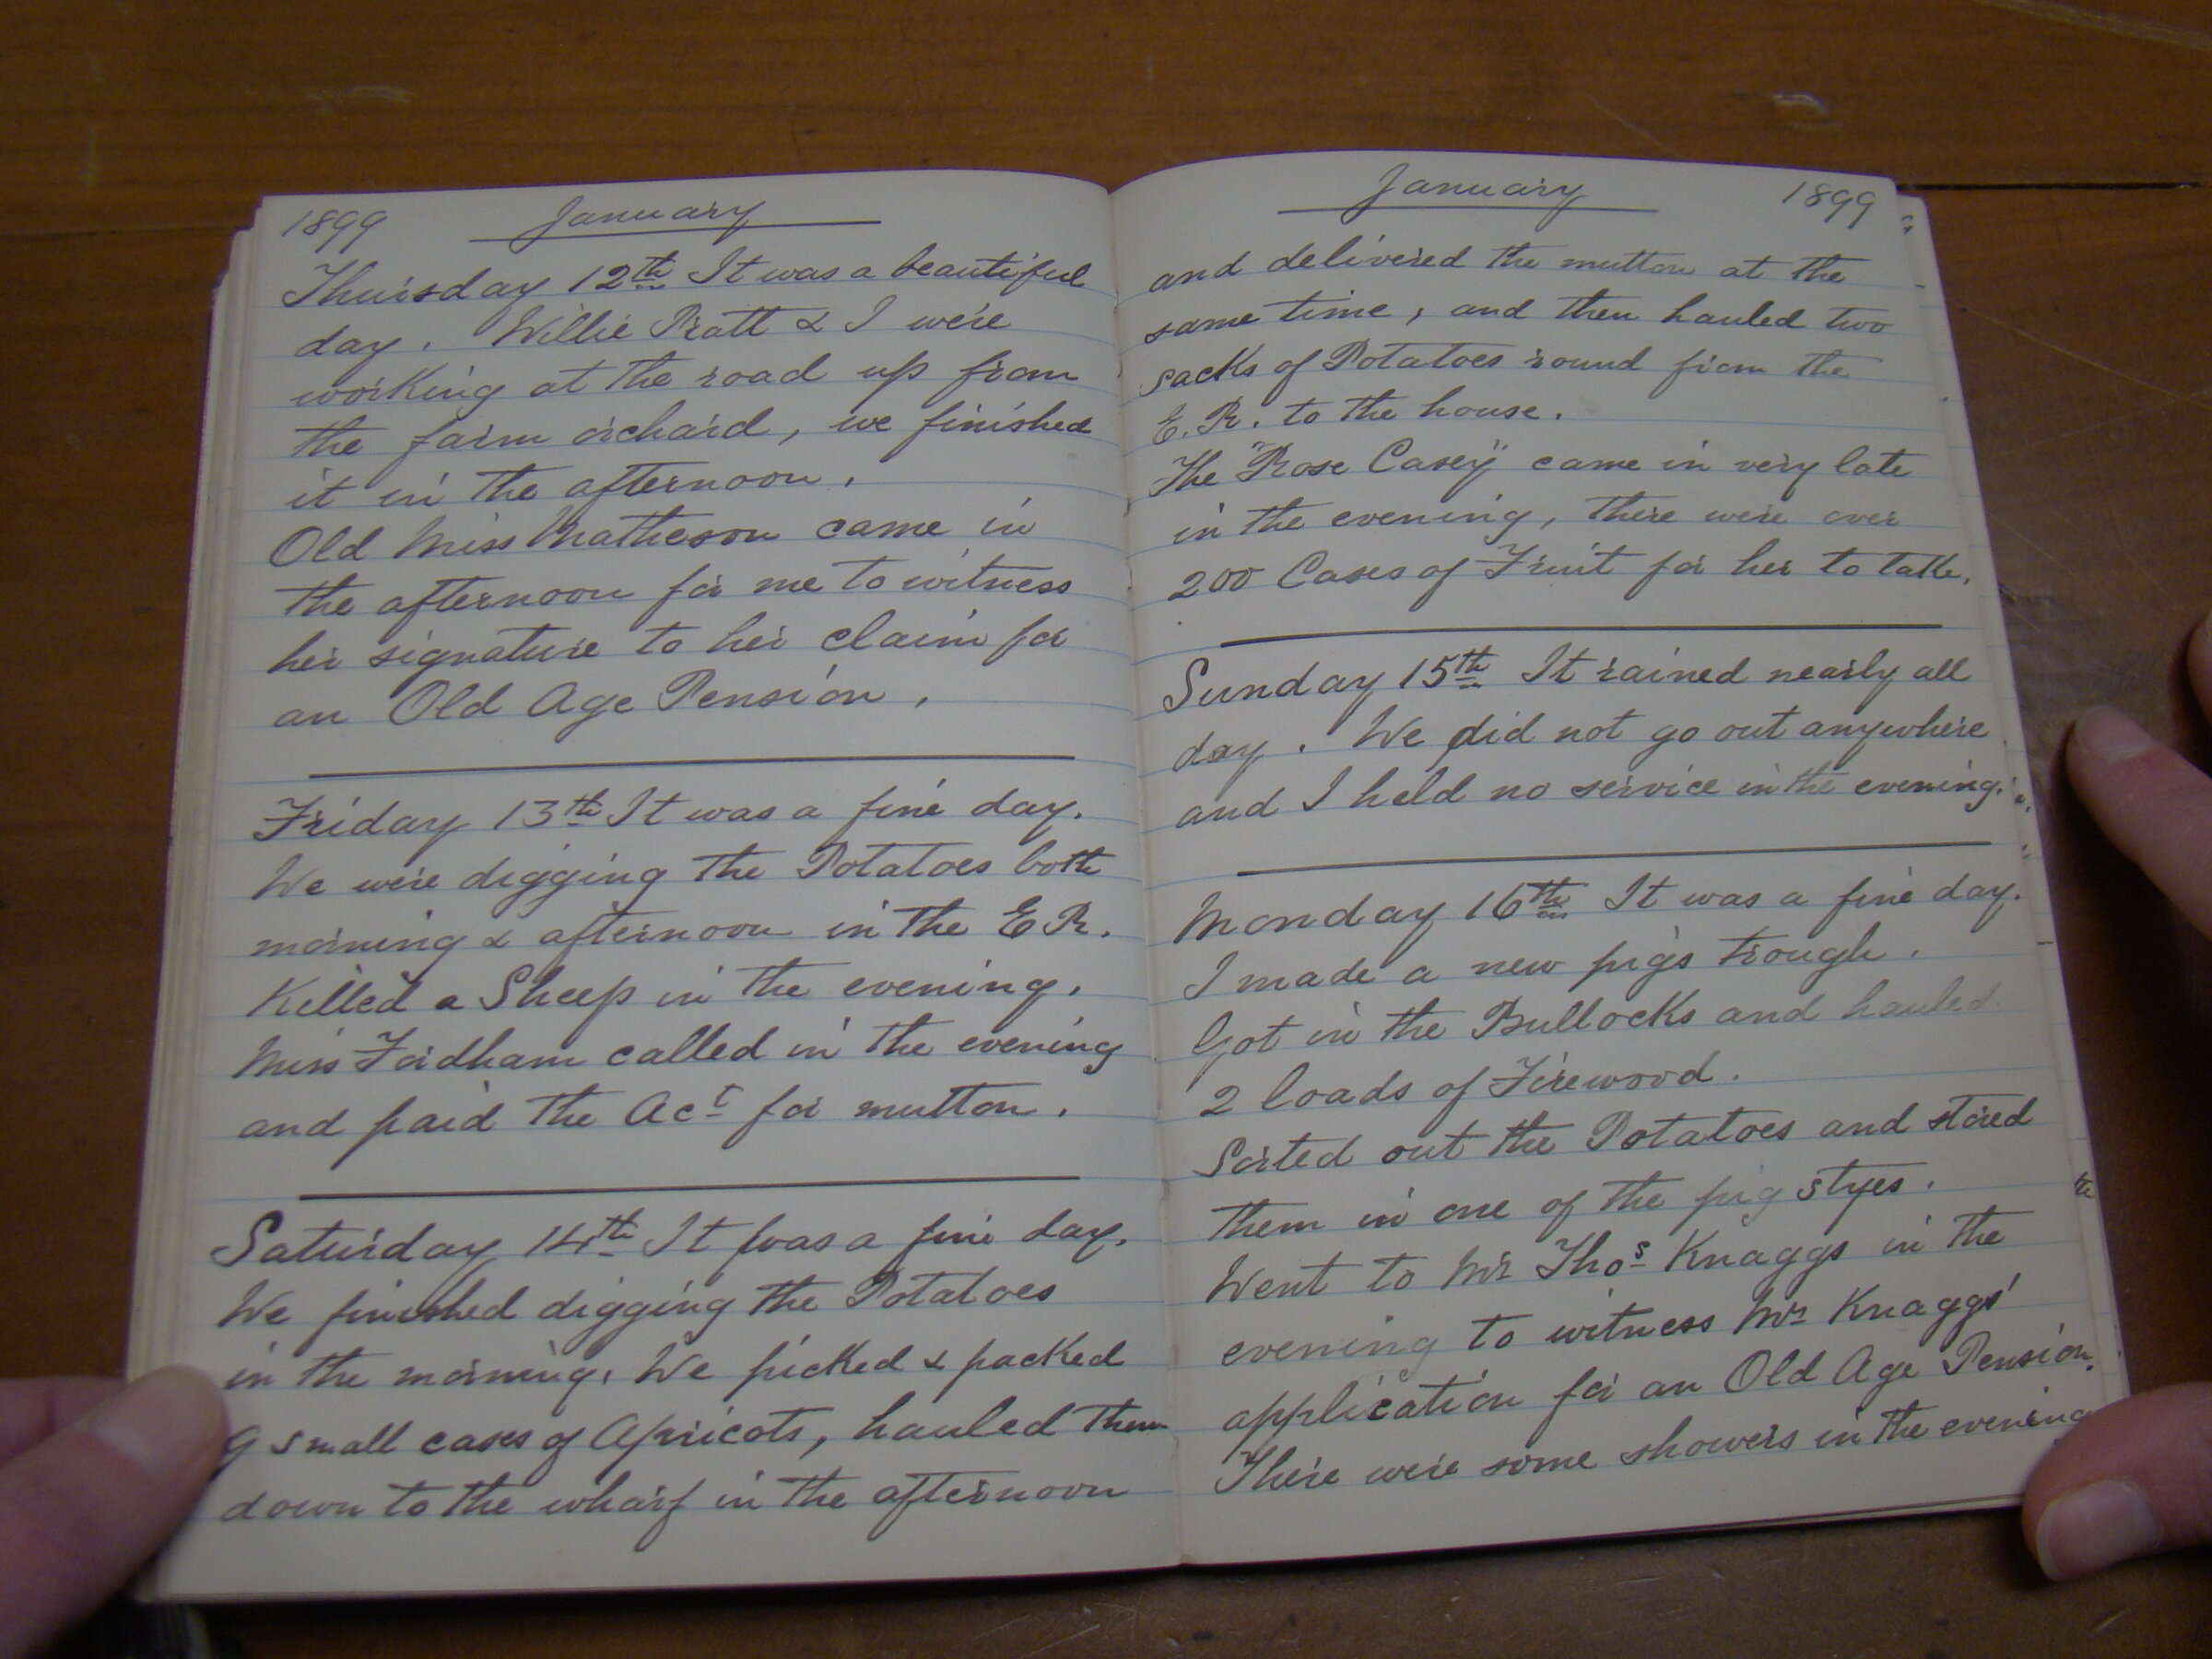 1899 January
Thursday 12th It was a beautiful
day. Willie Pratt & I were
working at the road up from
the farm orchard, we finished
it in the afternoon.
Old Miss Matheson came in
the afternoon for me to witness
her signature to her claim for
an Old Age Pension.
Friday 13th It was a fine day.
We were digging the Potatoes both
morning & afternoon in the E R.
Killed a Sheep in the evening.
Miss Fordham called in the evening
and paid the Act for mutton.
Saturday 14th It was a fine day.
We finished digging the Potatoes
in the morning. We picked & packed
9 small cases of Apricots, hauled them
down to the wharf in the afternoon
January 1899
and delivered the mutton at the
same time; and then hauled two
sacks of Potatoes round from the
E. R. to the house.
The "Rose Casey" came in very late
in the evening, there were over
200 Cases of Fruit for her to take.
Sunday 15th It rained nearly all
day. We did not go out anywhere
and I held no service in the evening.
Monday 16th It was a fine day.
I made a new pigs trough.
Got in the Bullocks and hauled
2 loads of Firewood.
Sorted out the Potatoes and stored
them in one of the pig styes.
Went to Mr Thos Knaggs in the
evening to witness Mr Knaggs'
application for an Old Age Pension.
There were some showers in the evening